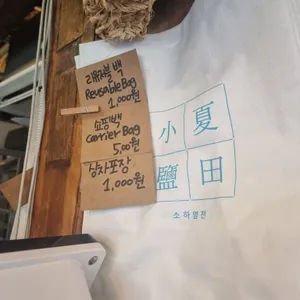 리유저블 백
Reusable Bag
1,000원
쇼핑백
Carrier Bag
5,00원
상자포장
1,000원
小夏
鹽田
소하염전